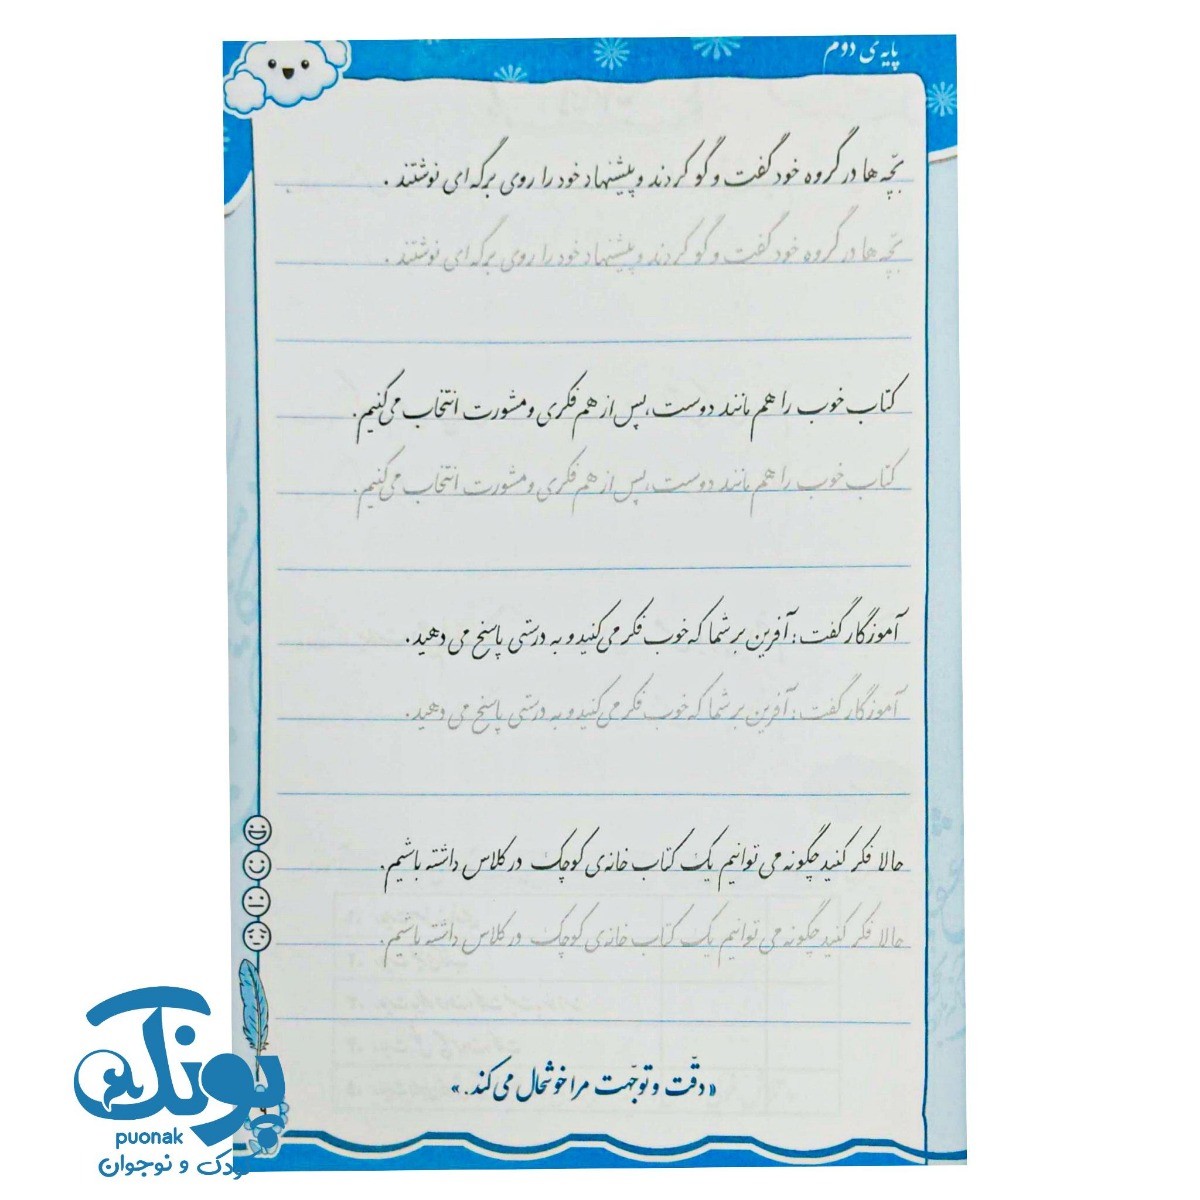 پایه ی دوم
بچّه ها در گروه خود گفت و گو کردند و پیشنهاد خود را روی برگه ای نوشتند .
بچّه ها در گروه خود گفت و گو کردند و پیشنهاد خود را روی برگه ای نوشتند .
کتاب خوب را هم مانند دوست، پس از هم فکری و مشورت انتخاب می کنیم.
کتاب خوب را هم مانند دوست، پس از هم فکری و مشورت انتخاب می کنیم.
آموزگار گفت : آفرین بر شما که خوب فکر می کنید و به درستی پاسخ می دهید.
آموزگار گفت : آفرین بر شما که خوب فکر می کنید و به درستی پاسخ می دهید.
حالا فکر کنید چگونه می توانیم یک کتاب خانه ی کوچک در کلاس داشته باشیم.
حالا فکر کنید چگونه می توانیم یک کتاب خانه ی کوچک در کلاس داشته باشیم.
«دقّت و توجّهت مرا خوشحال می کند.»
پونک
puonak
کودک و نوجوان